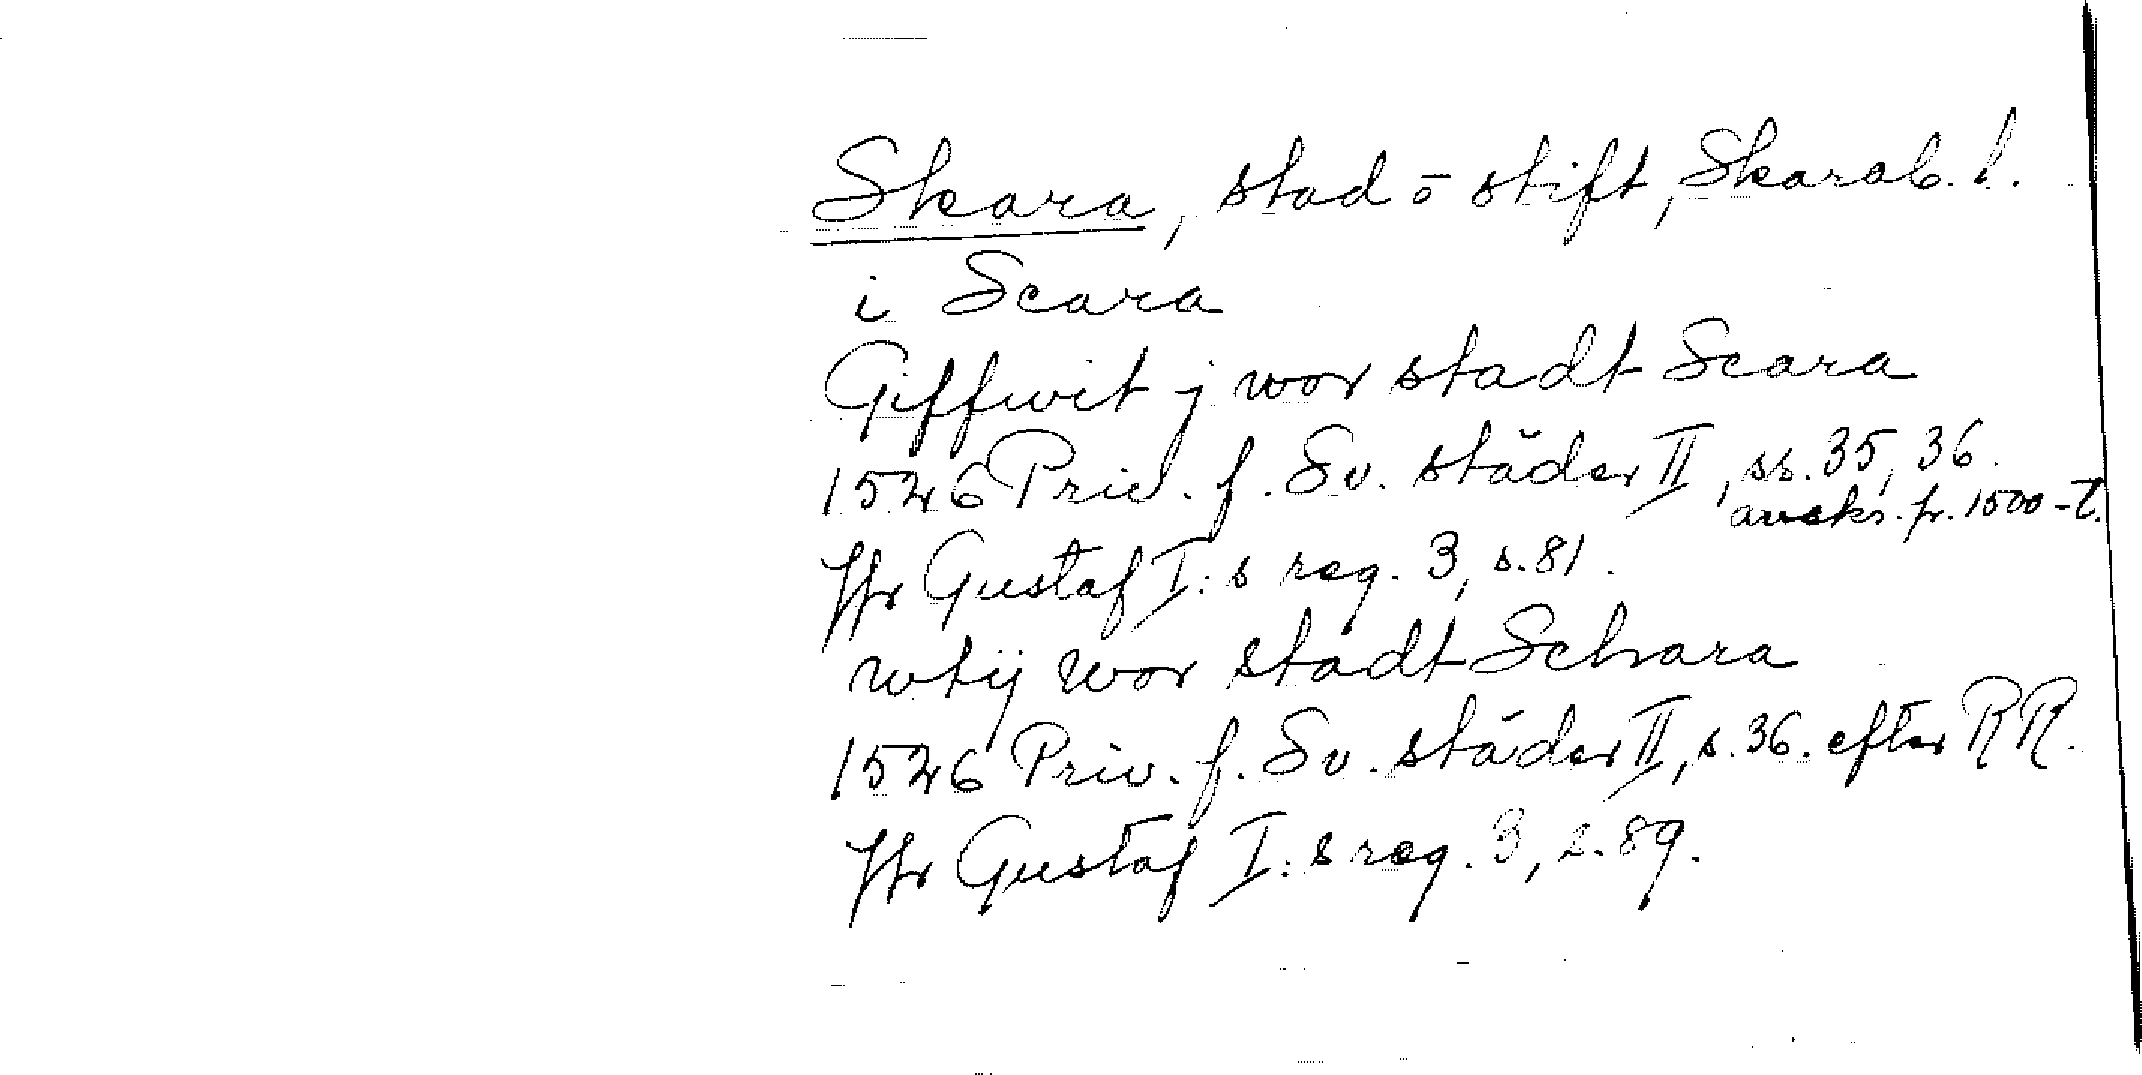 Skara, stad o stift, Skarab. l.
i Scara
Giffwit j wor stadt Scara
1526 Priv. f. Sv. städer II, ss. 35, 36.
avskr. fr. 1500-t.
Jfr Gustaf I:s reg. 3, s. 81.
wtij wor stadt Schara
1526 Priv. f. Sv. städer II, s. 36. efter RR.
Jfr Gustaf I:s reg. 3, s. 89.